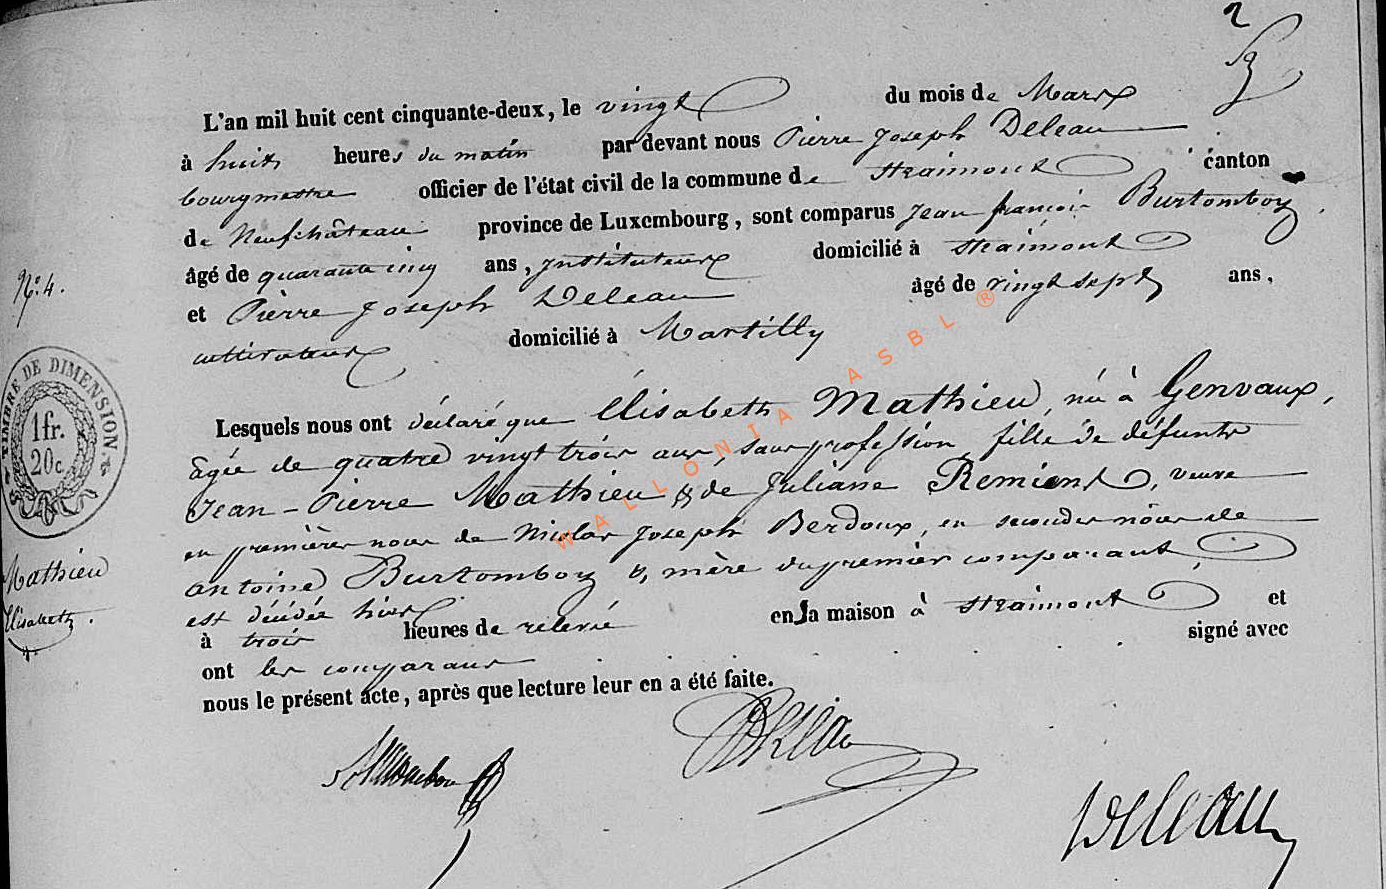 2
L'an mil huit cent cinquante-deux, le vingt du mois de Mars
à huit heures du matin par devant nous Pierre Joseph Deleau
bourgmestre officier de l'état civil de la commune de Straimont canton
de Neufchâteau province de Luxembourg, sont comparus Jean françois Burtomboy,
âgé de quarante cinq ans, instituteur domicilié à Straimont
et Pierre Joseph Deleau âgé de vingt sept ans,
cultivateur domicilié à Martilly
Lesquels nous ont déclaré que Elisabeth Mathieu, née à Genvaux,
âgée de quatre vingt trois ans, sans profession, fille de défunts
Jean-Pierre Mathieu & de Juliane Remient, veuve
en premières noces de Nicolas Joseph Berdoux, en secondes nôces de
Antoine Burtomboy &, mère du premier comparant,
est décédée hier
à trois heures de relevée en sa maison à Straimont et
ont les comparans signé avec
nous le présent acte, après que lecture leur en a été faite.
Deleau
N°. 4.
TIMBRE DE DIMENSION
1 fr.
20 c.
Mathieu
Elisabeth.
WALLONIA ASBL ®